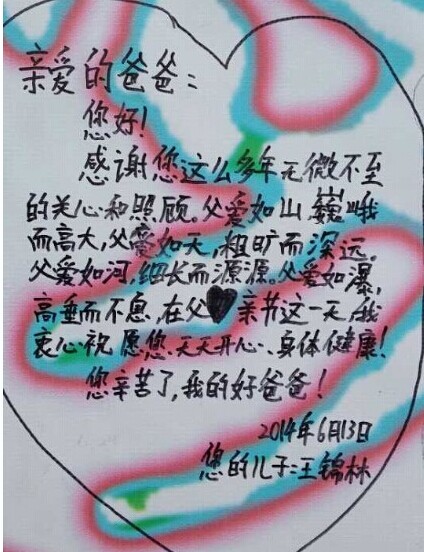 亲爱的爸爸：
您好！
感谢您这么多年无微不至
的关心和照顾。父爱如山，巍峨
而高大，父爱如天，粗旷而深远。
父爱如河，细长而源源。父爱如瀑，
高垂而不息，在父亲节这一天，我
衷心祝愿您、天天开心、身体健康！
您辛苦了，我的好爸爸！
2014年6月13日
您的儿子：王锦林